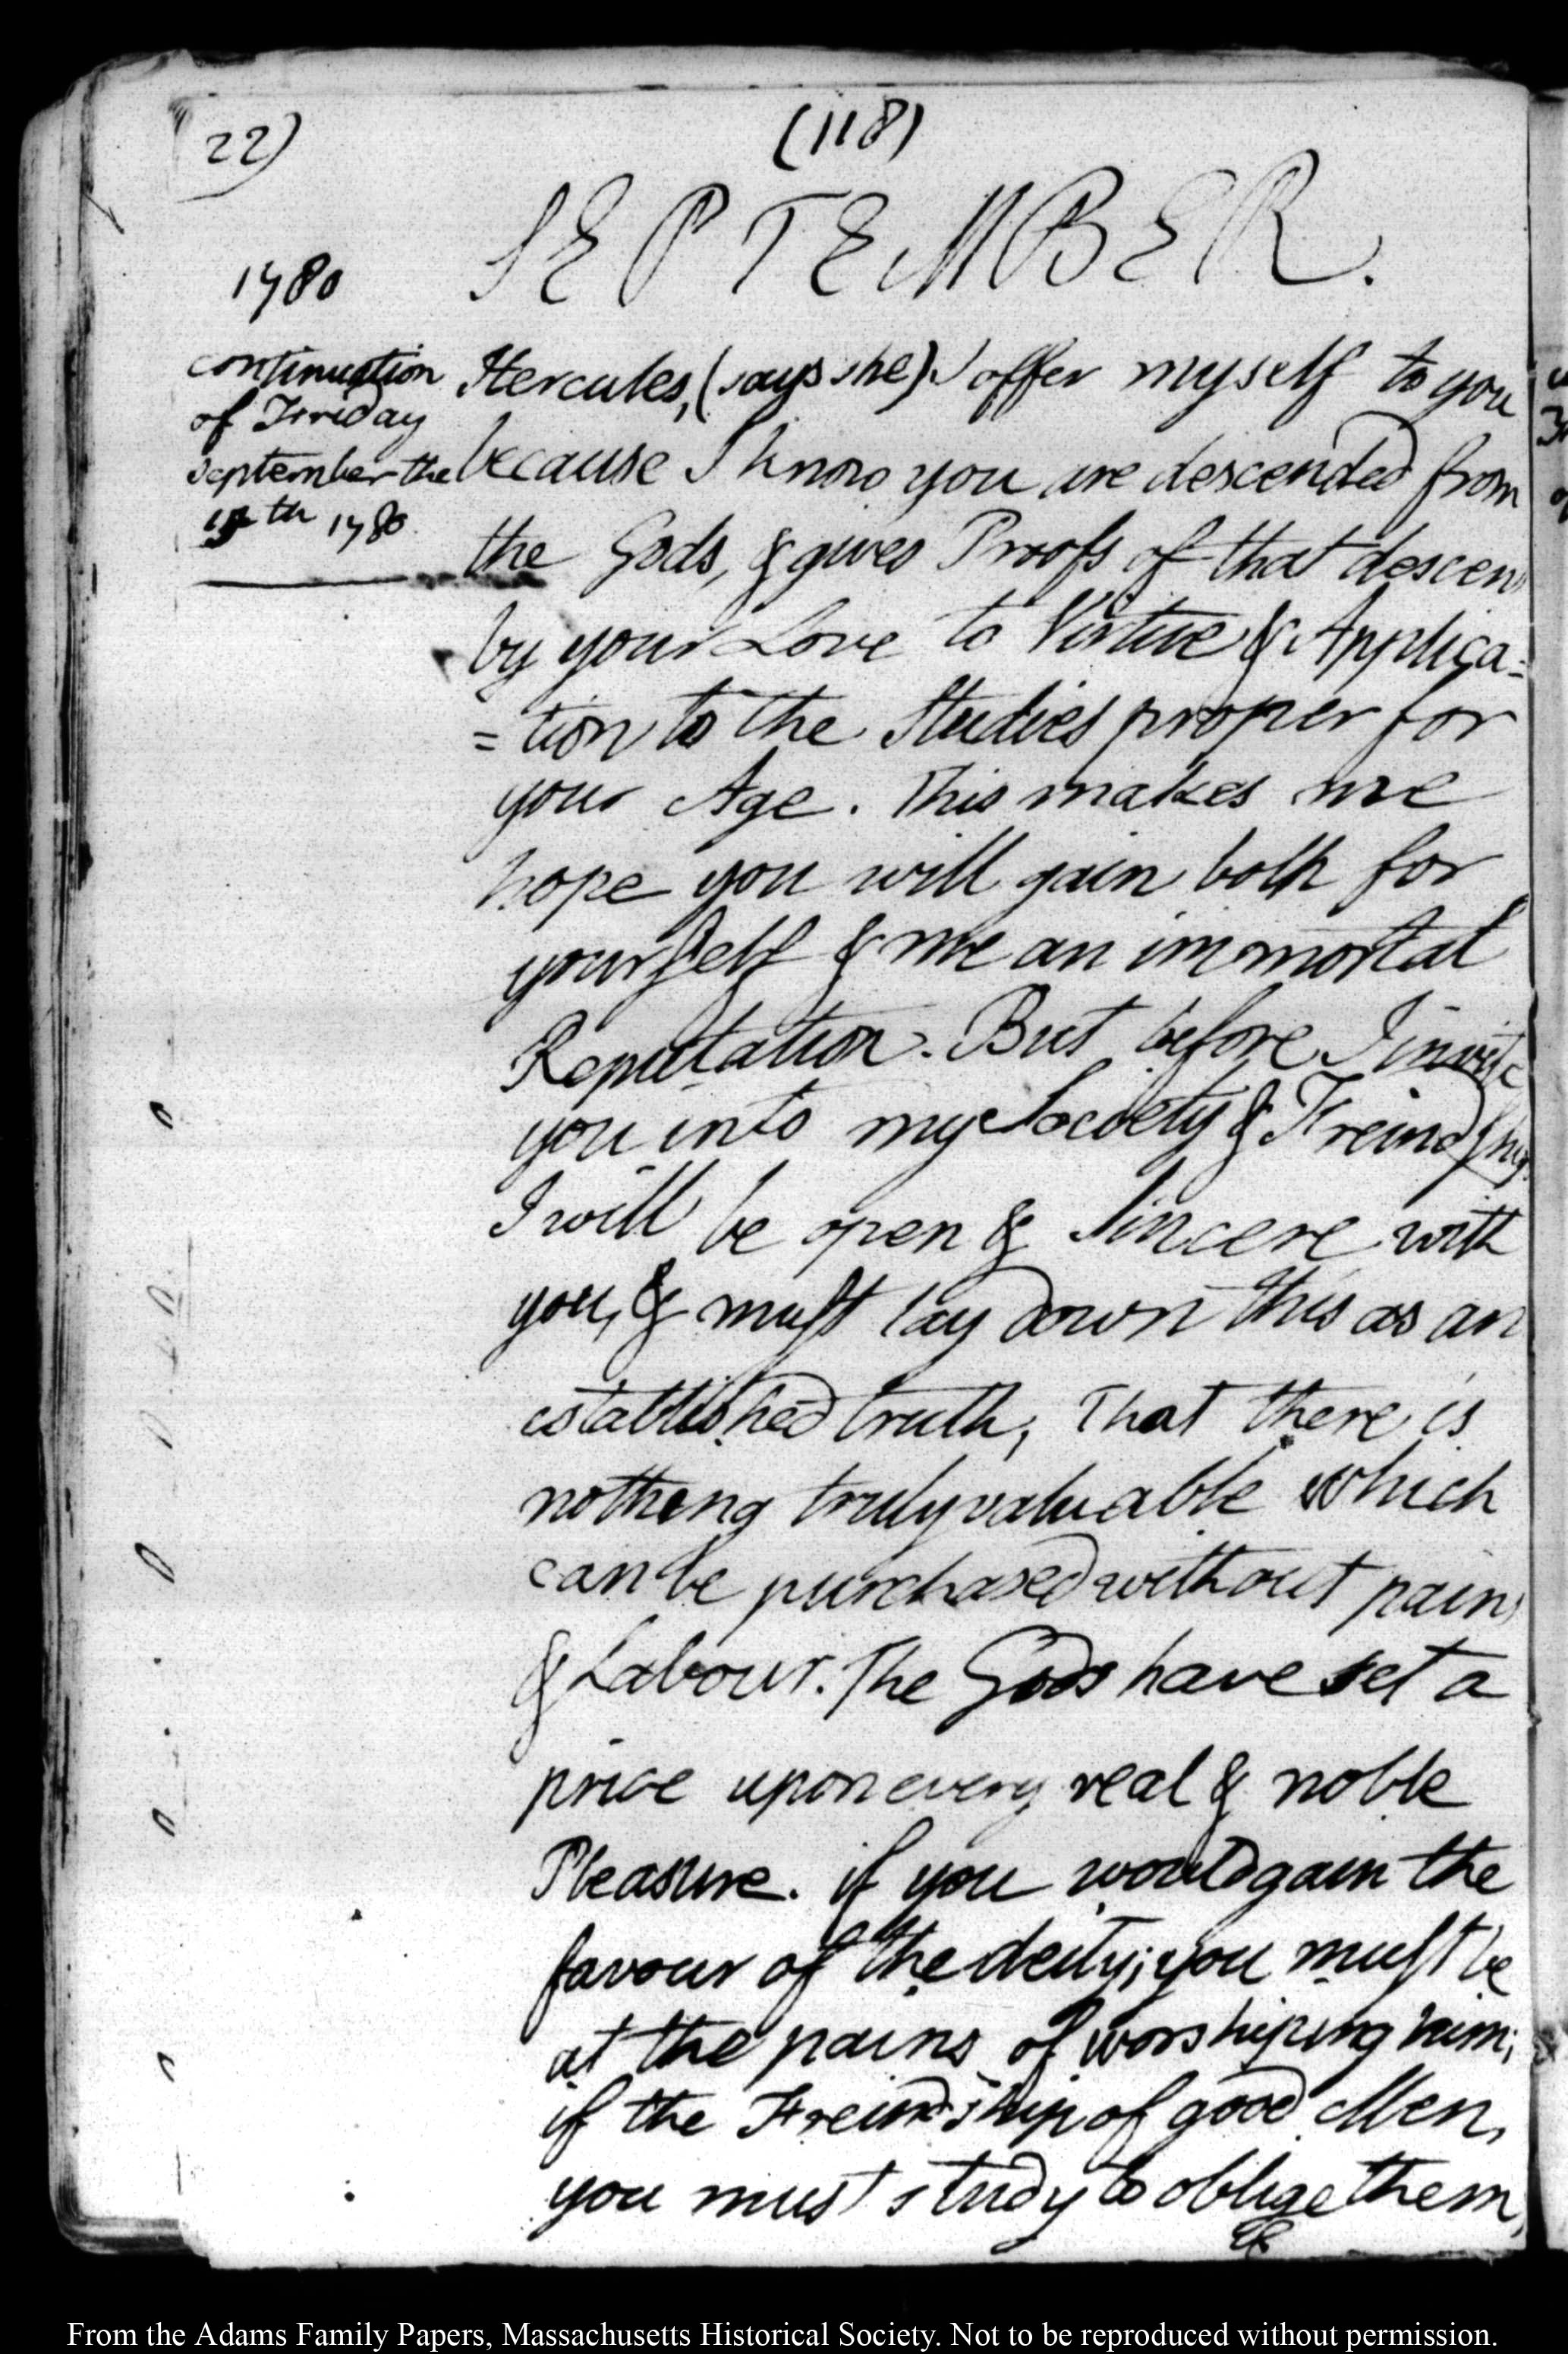 22)
(118)
SEPTEMBER.
1780
continuation
of Friday
September the
15th 1780
Hercules, (says she) I offer myself to you
because I know you are descended from
the Gods, & gives Proofs of that descen
by your Love to Virtue & Applica=
=tion to the Studies proper for
your Age. This makes me
hope you will gain both for
yourself & me an immortal
Reputation. But before I invite
you into my Society & Freindship
I will be open & Sincere with
you, & must lay down this as an
established truth, That there is
nothing truly valuable which
can be purchased without pains
& Labour. The Gods have set a
price upon every real & noble
Pleasure. if you would gain the
favour of the deity; you must be
at the pains of worshiping him;
if the Freindship of good Men,
you must study to oblige them,
&
From the Adams Family Papers, Massachusetts Historical Society. Not to be reproduced without permission.